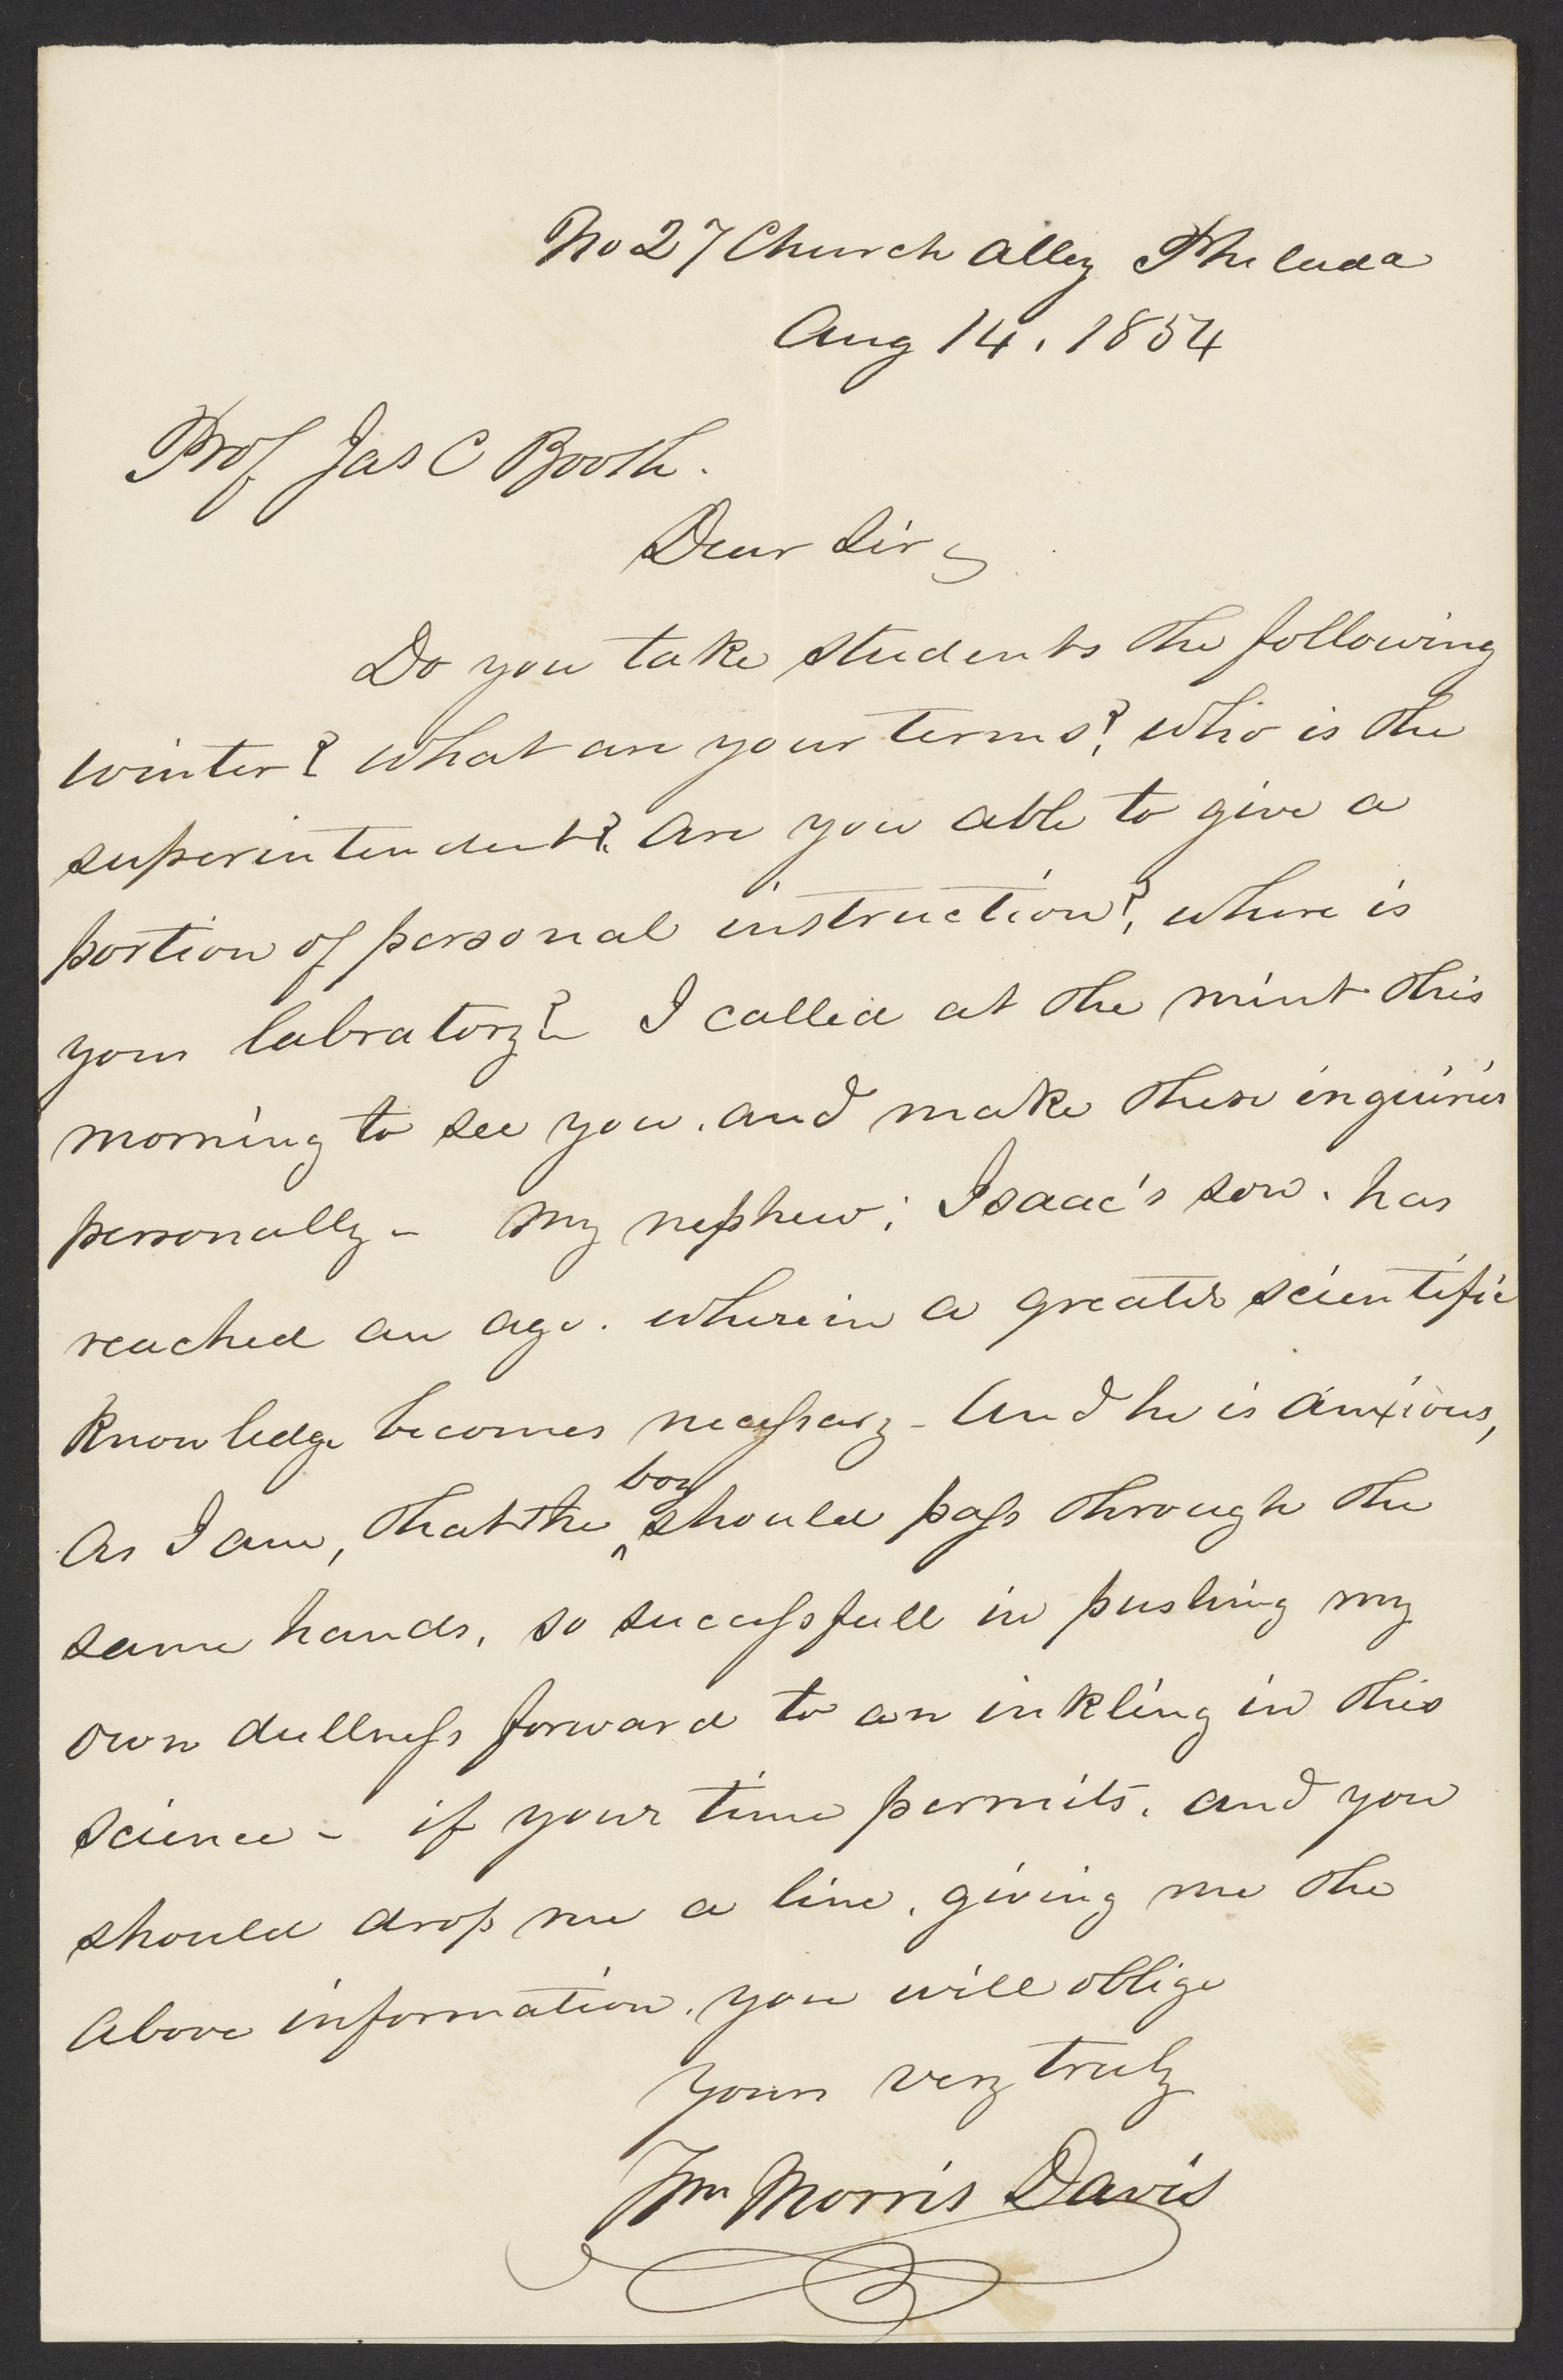 No 27 Church Alley Philada
Aug 14. 1854
Prof Jas C Booth.
Dear Sir,
Do you take students the following
winter? What are your terms? Who is the
superintendent? Are you able to give a
portion of personal instruction? where is
your labratory? I called at the mint this
morning to see you, and make these inquiries
personally - My nephew; Isaac's son. has
reached an age. wherein a greater scientific
knowledge becomes necessary - And he is anxious,
As I am, that the boy should pass through the
same hands, so successfull in pushing my
own dullness forward to an inkling in this
science - if your time permits. and you
should drop me a line, giving me the
above information. you will oblige
Yours very truly
Wm Morris Davis